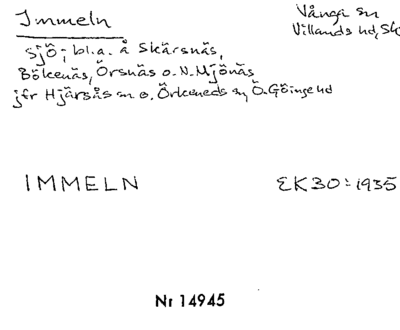 Immeln
Vånga sn
Villands hd, Sk
Sjö; bl.a. å Skärsnäs,
Bökenäs, Örsnäs o. N. Mjönäs
jfr Hjärsås sn o. Örkeneds sn, Ö. Göinge hd
IMMELN EK 30:1935
Nr 14945